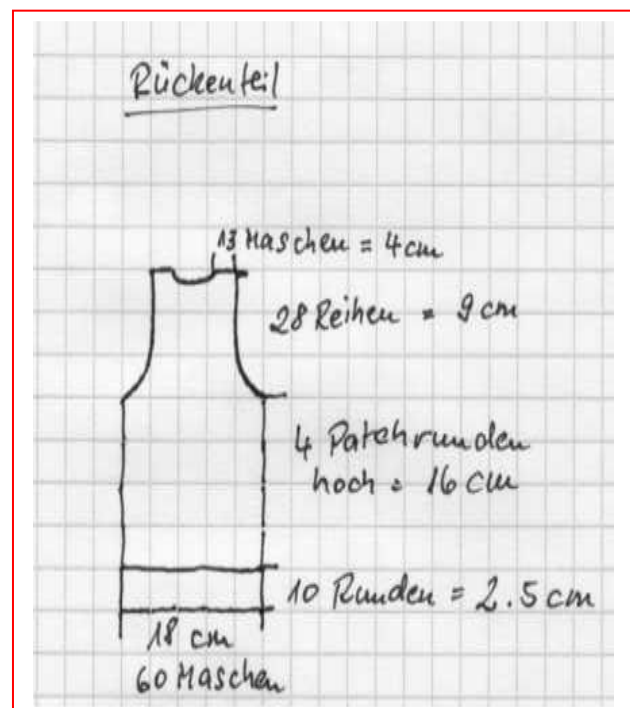 Rückenteil
13 Maschen = 4 cm
28 Reihen = 9 cm
4 Patchrunden
hoch = 16 cm
10 Runden = 2.5 cm
18 cm
60 Maschen